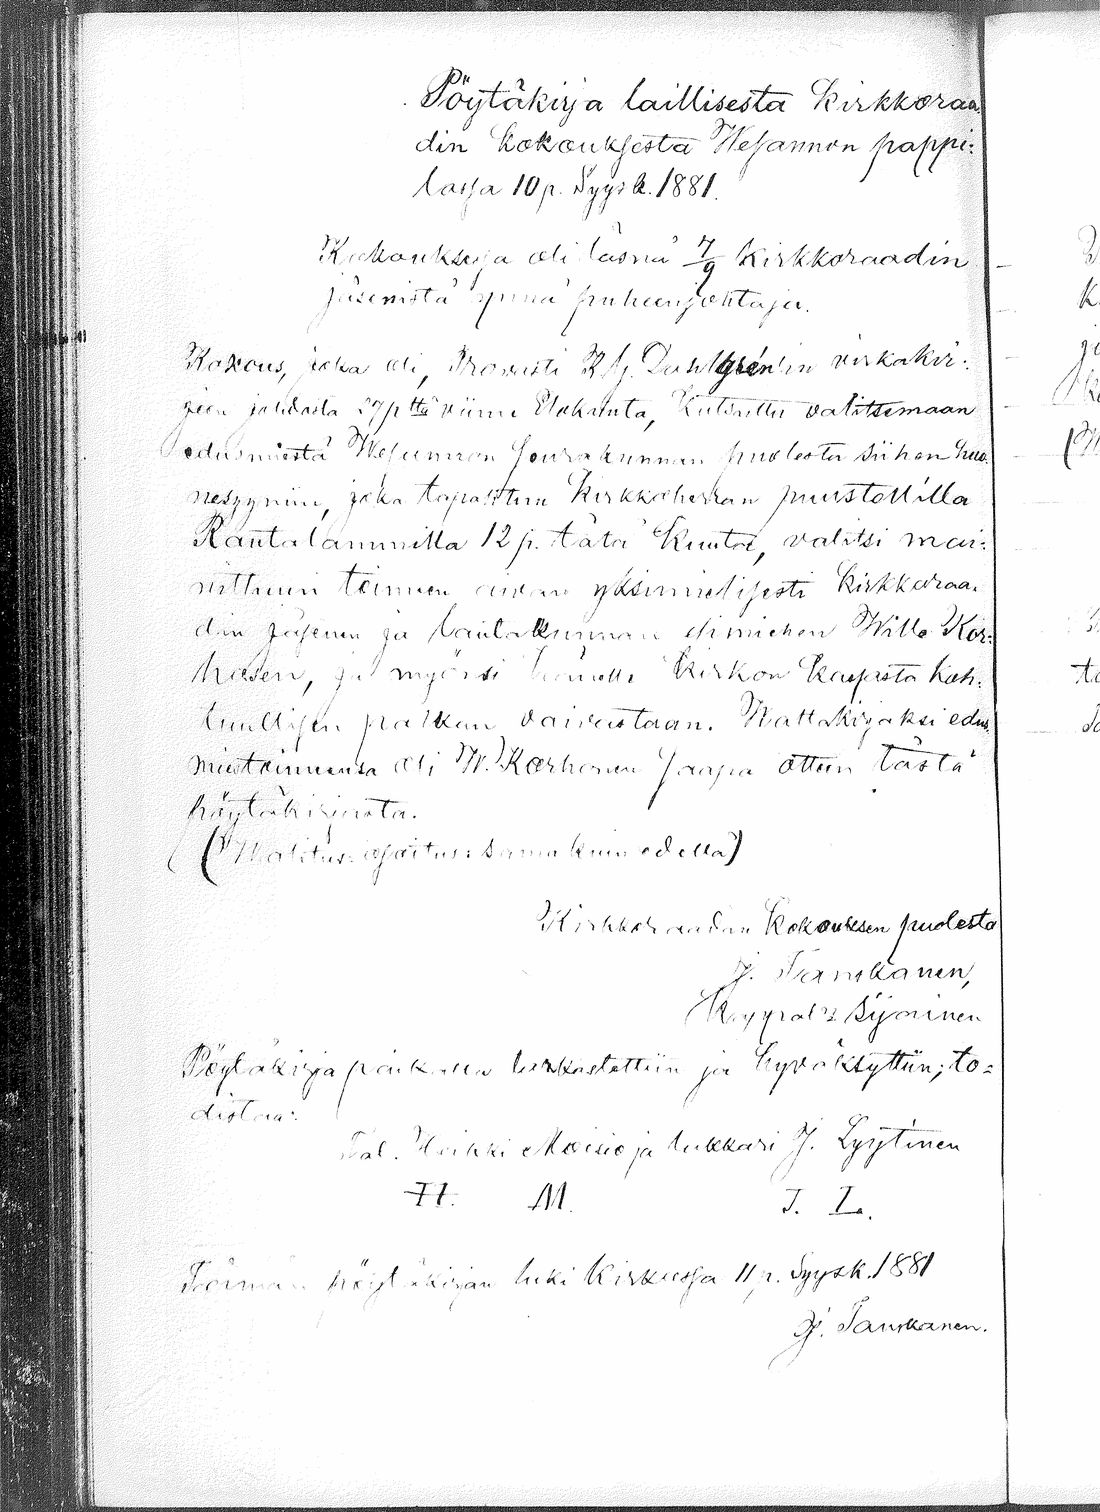 Pöytäkirja laillisesta Kirkkoraa-
din Kokouksesta Wesannon pappi:
lassa 10 p. Syysk. 1881.
Kokouksessa oli läsnä 7/9 Kirkkoraadin
jäsenistä ynnä puheenjohtaja.
Kokous, joka oli, Provasti K. J. Dahlgrénin virkakir:
jeen johdosta 27 p ttä viime Elokuuta, Kutsuttu valitsemaan
edusmiestä Wesannon Seurakunnan puolesta siihen huo-
nesyyniin, joka tapahtuu Kirkkoherran puustellilla
Rautalammilla 12 p. tätä Kuuta, valitsi mai:
nittuun toimeen aivan yksimielisesti Kirkkoraa-
din jäsenen ja lautakunnan esimiehen Wille Kor:
hosen, ja myönsi hänelle Kirkon Kassasta koh:
tuullisen palkan vaivastaan. Waltakirjaksi edus-
miestoimeensa oli W. Korhonen saapa otteen tästä
pöytäkirjasta.
(Walitus-osoitus: sama kuin edellä)
Kirkkoraadin Kokouksen puolesta
J. Tanskanen,
Kappal:s sijainen
Pöytäkirja paikalla tarkastettiin ja hyväksyttiin; to=
distaa:
Tal. Heikki Moisio ja lukkari J. Lyytinen
H. M. J. L.
Tämän pöytäkirjan luki Kirkossa 11 p. Syysk. 1881
J. Tanskanen.